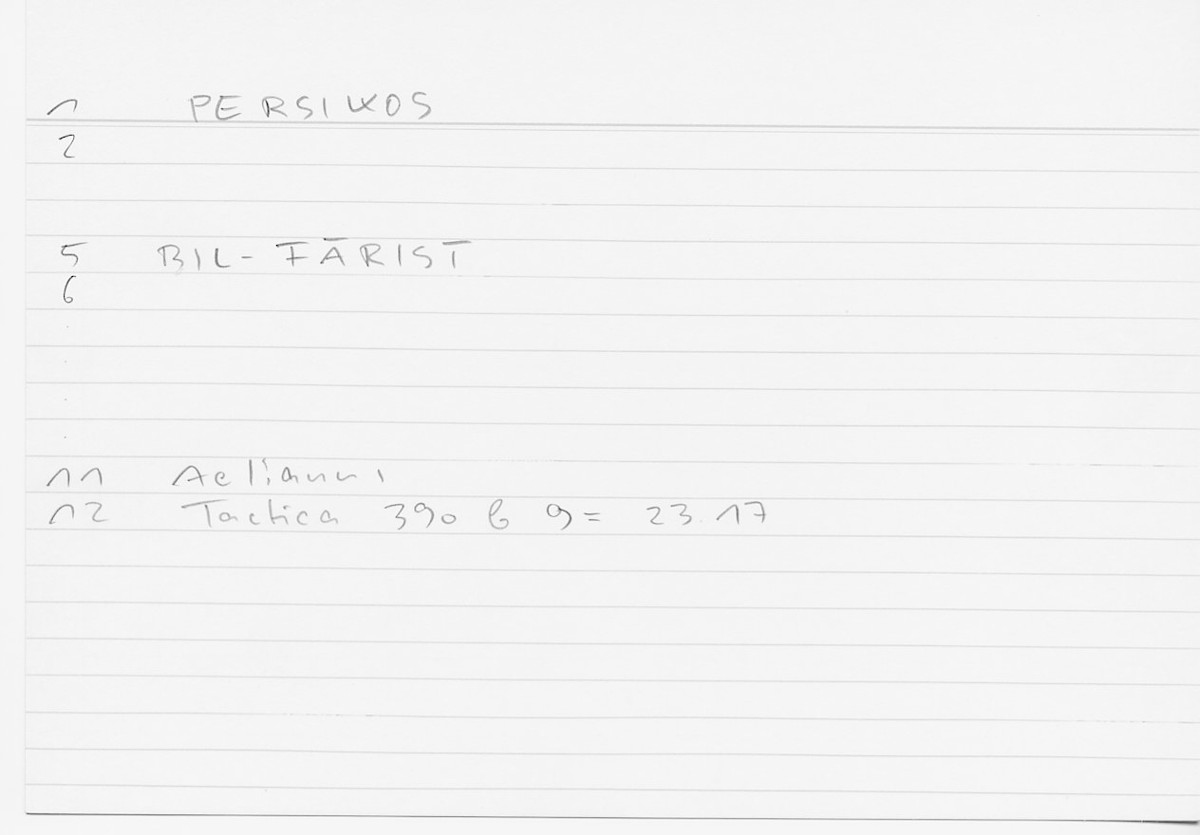 1 PERSIKOS
2
5 BIL-FĀRISĪ
6
.
.
.
.
11 Aelianus
12 Tactica 390 b 9 = 23.17